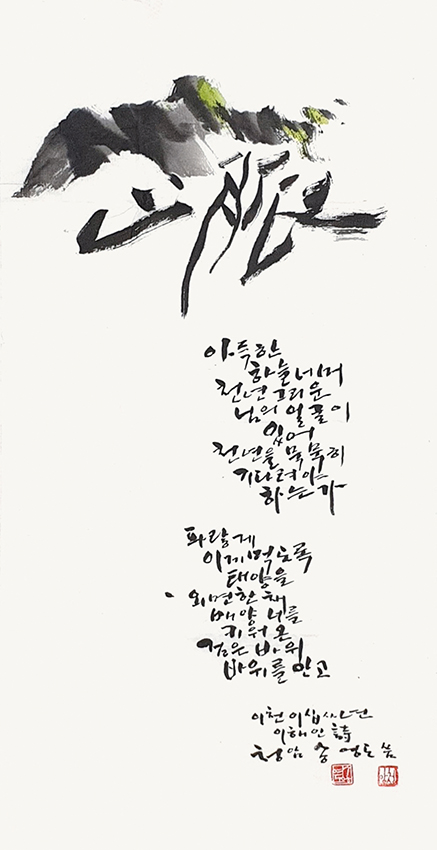 山脈
아득한
하늘너머
천년 그리운
님의 얼굴이
있어
천년을 묵묵히
기다려야
하는가
파랗게
태양을
외면한 채
너를
키워 온
검은 바위
바위를 안고
이천이십사년
이해인 詩
청암 송 영도 씀